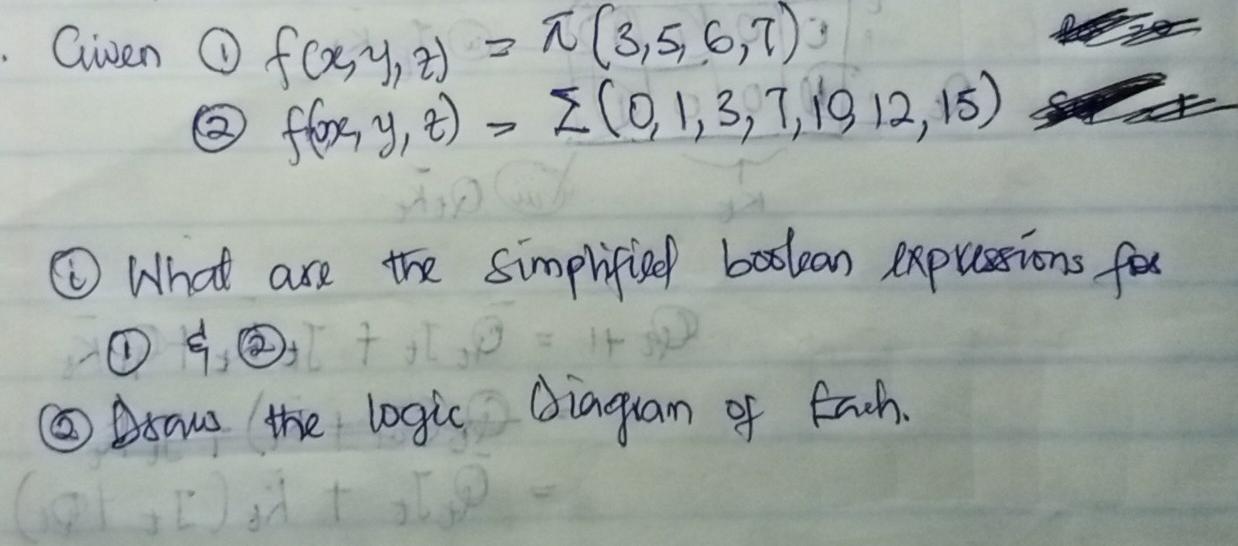 . Given ① f(x, y, z) = π (3, 5, 6, 7)
② f(x, y, z) = Σ (0, 1, 3, 7, 10, 12, 15)
① What are the simplified boolean expressions for
① & ②.
② Draw the logic Diagram of Each.